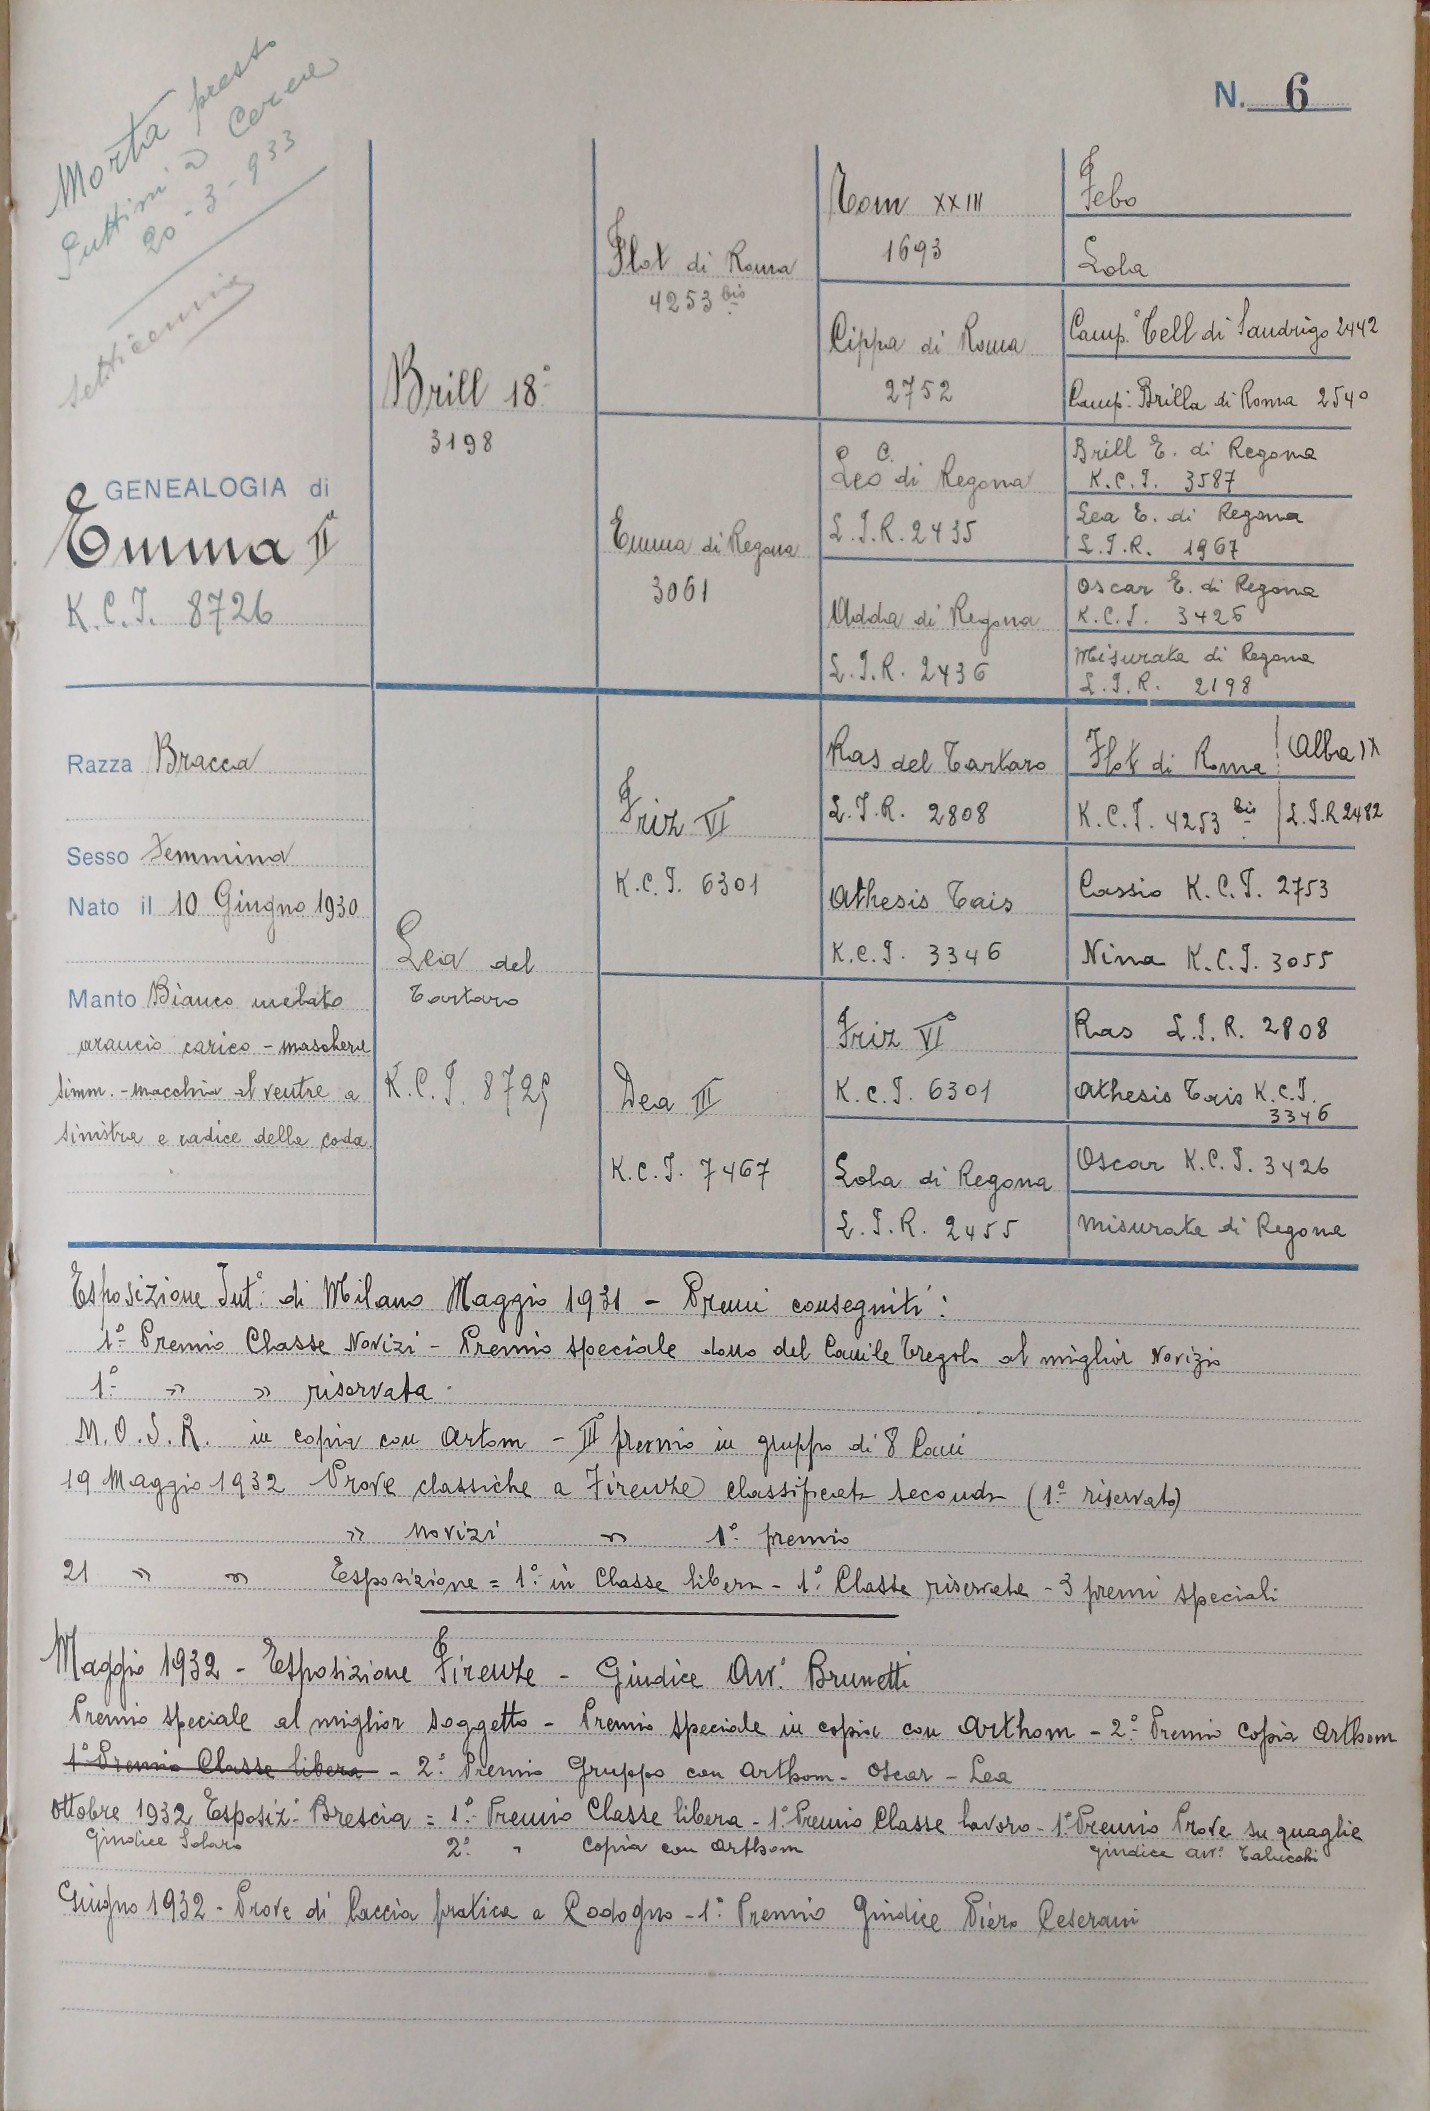 N. 6
Morta presso
Puttini a Cerea
20-3-933
Setticemia
GENEALOGIA di
Emma IIª
K.C.I. 8726
Razza Bracca
Sesso Femmina
Nato il 10 Giugno 1930
Manto Bianco melato
arancio carico - maschera
simm. - macchia al ventre a
sinistra e radice della coda.
Brill 18°
3198
Lea del
Tartaro
K.C.I. 8725
Flot di Roma
4253 bis
Emma di Regona
3061
Friz VI°
K.C.I. 6301
Dea III
K.C.I. 7467
Tom XXIII
1693
Cippa di Roma
2752
Leo C. di Regona
L.I.R. 2435
Adda di Regona
L.I.R. 2436
Ras del Tartaro
L.I.R. 2808
Athesis Tais
K.C.I. 3346
Friz VI°
K.C.I. 6301
Lola di Regona
L.I.R. 2455
Febo
Lola
Camp.° Tell di Sandrigo 2442
Camp: Brilla di Roma 2540
Brill E. di Regona
K.C.I. 3587
Lea E. di Regona
L.I.R. 1967
Oscar E. di Regona
K.C.I. 3426
Misurata di Regona
L.I.R. 2198
Flot di Roma Alba IX
K.C.I. 4253 bis L.I.R 2482
Cassio K.C.I. 2753
Nina K.C.I. 3055
Ras L.I.R. 2808
Athesis Tais K.C.I.
3346
Oscar K.C.I. 3426
Misurata di Regona
Esposizione Int.° di Milano Maggio 1931 - Premi conseguiti:
1° Premio Classe Novizi - Premio speciale dono del Canile Tregoli al miglior Novizio
1° " " riservata -
M.O.S.R. in copia con Artom - II° premio in gruppo di 8 Cani
19 Maggio 1932 Prove classiche a Firenze classificata seconda (1° riservato)
" Novizi " 1° premio
21 " " Esposizione = 1° in Classe libera - 1° Classe riservata - 3 premi speciali
Maggio 1932 - Esposizione Firenze - Giudice Avv. Brunetti
Premio speciale al miglior soggetto - Premio speciale in copia con Arthom - 2° Premio Copia Arthom
1° Premio Classe libera - 2° Premio Gruppo con Arthom - Oscar - Lea
Ottobre 1932 Esposiz: Brescia = 1° Premio Classe libera - 1° Premio Classe lavoro - 1° Premio Prove su quaglie
Giudice Solaro 2° " Copia con Arthom giudice avv.
Giugno 1932 - Prove di Caccia pratica a Codogno - 1° Premio Giudice Piero Ceserani